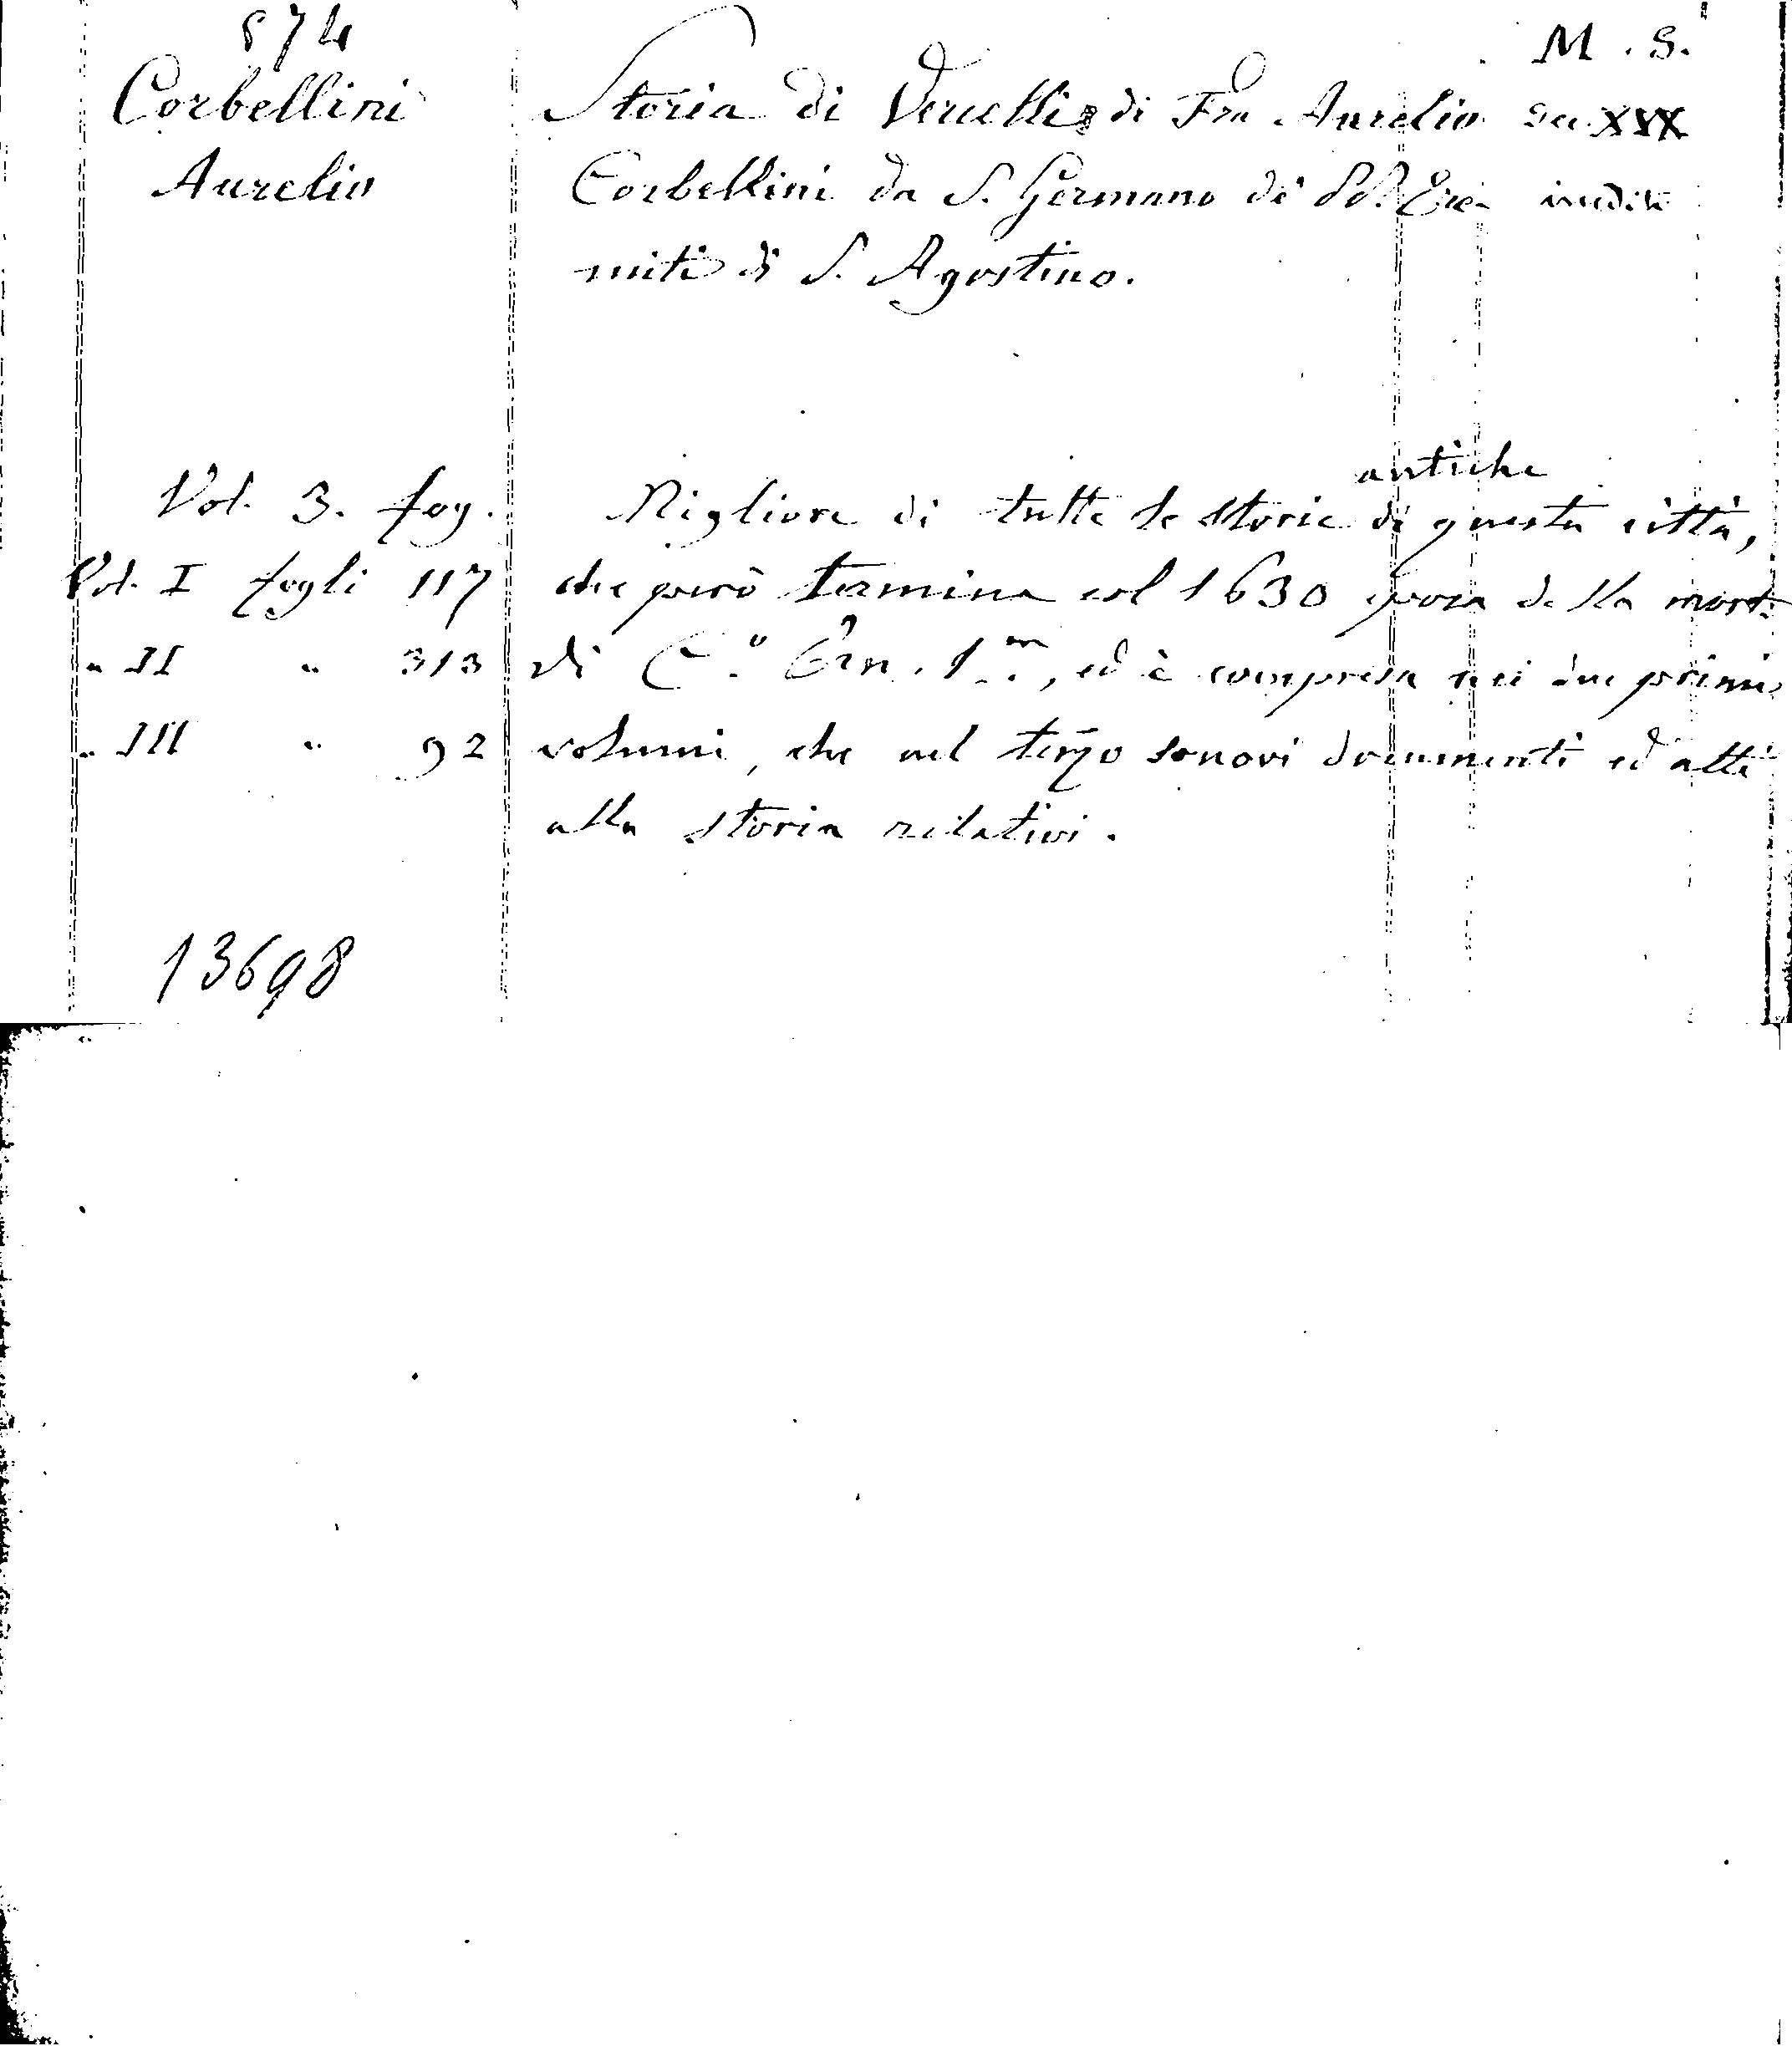 574
M. S.
Corbellini
Aurelio
Storia di Vercelli di Fra Aurelio
Corbellini da S. Germano de' PP. Ere- inedita
miti di S. Agostino.
Vol. 3. fog.
Vol. I fogli 117
" II " 313
" III " 92
antiche
Migliore di tutte le storie di questa città,
che però termina col 1630 epoca della morte
di C.º Em. 1.mo, ed è compresa nei due primi
volumi, che nel terzo sonovi documenti ed atti
alla storia relativi.
13698